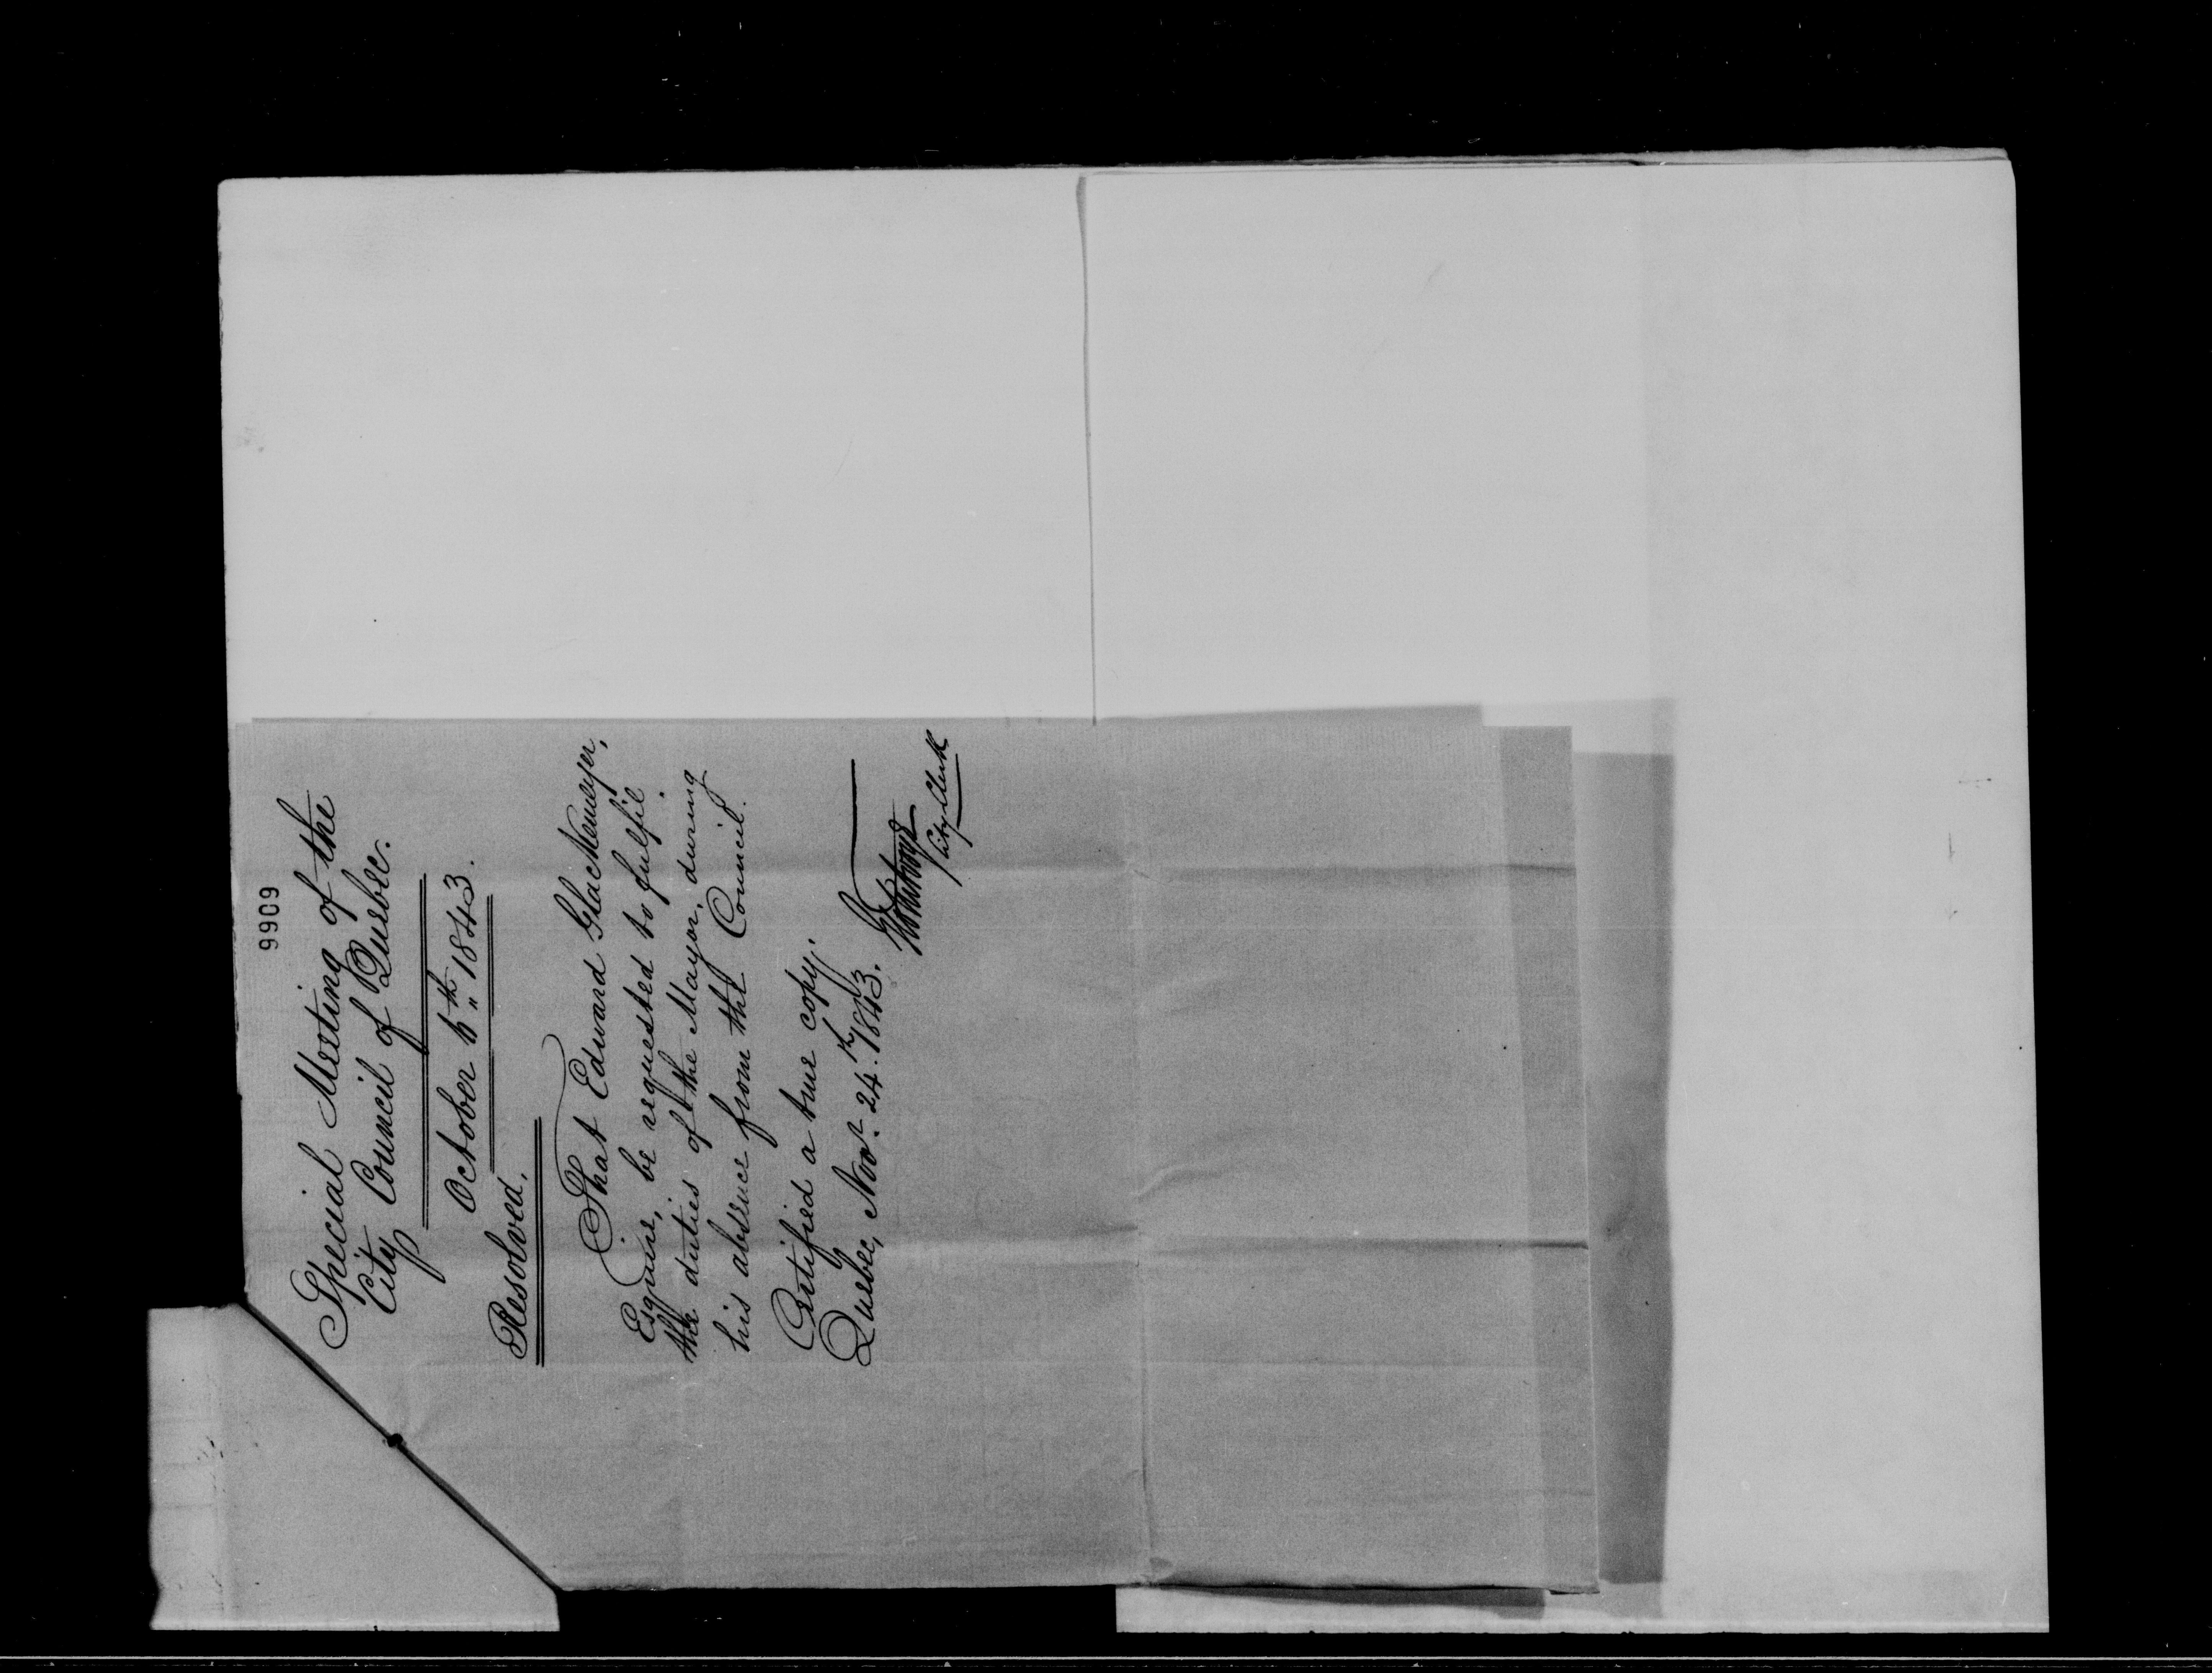 9909
Special Meeting of the
City Council of Quebec.
October 6th 1843.
Resolved.
That Edward GlacKemeyer,
Esquire, be requested to fulfil
the duties of the Mayor, during
his absence from the Council.
Certified a true copy.
Quebec, Novr. 24th 1843.
City Clerk